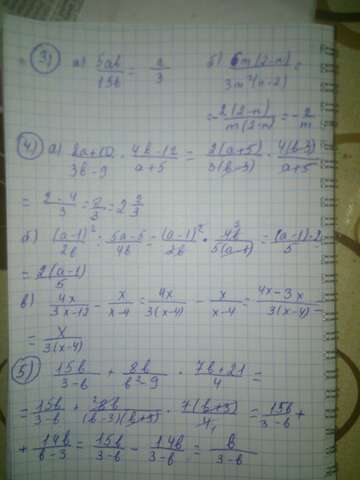 3) а) 5ab/15b = a/3 б) 6m(2-n)/3m²(n-2) =
= 2(2-n)/m(2-n) = -2/m
4) а) 2a+10/3b-9 · 4b-12/a+5 = 2(a+5)/3(b-3) · 4(b-3)/a+5
= 2·4/3 = 8/3 = 2 2/3
б) (a-1)²/2b : 5a-5/4b = (a-1)²/2b · 4b/5(a-1) = (a-1)·2/5
= 2(a-1)/5
в) 4x/3x-12 - x/x-4 = 4x/3(x-4) - x/x-4 = 4x-3x/3(x-4) =
= x/3(x-4)
5) 15b/3-b + 8b/b²-9 · 7b+21/4 =
= 15b/3-b + 8b/(b-3)(b+3) · 7(b+3)/4 = 15b/3-b +
+ 14b/b-3 = 15b/3-b - 14b/3-b = b/3-b